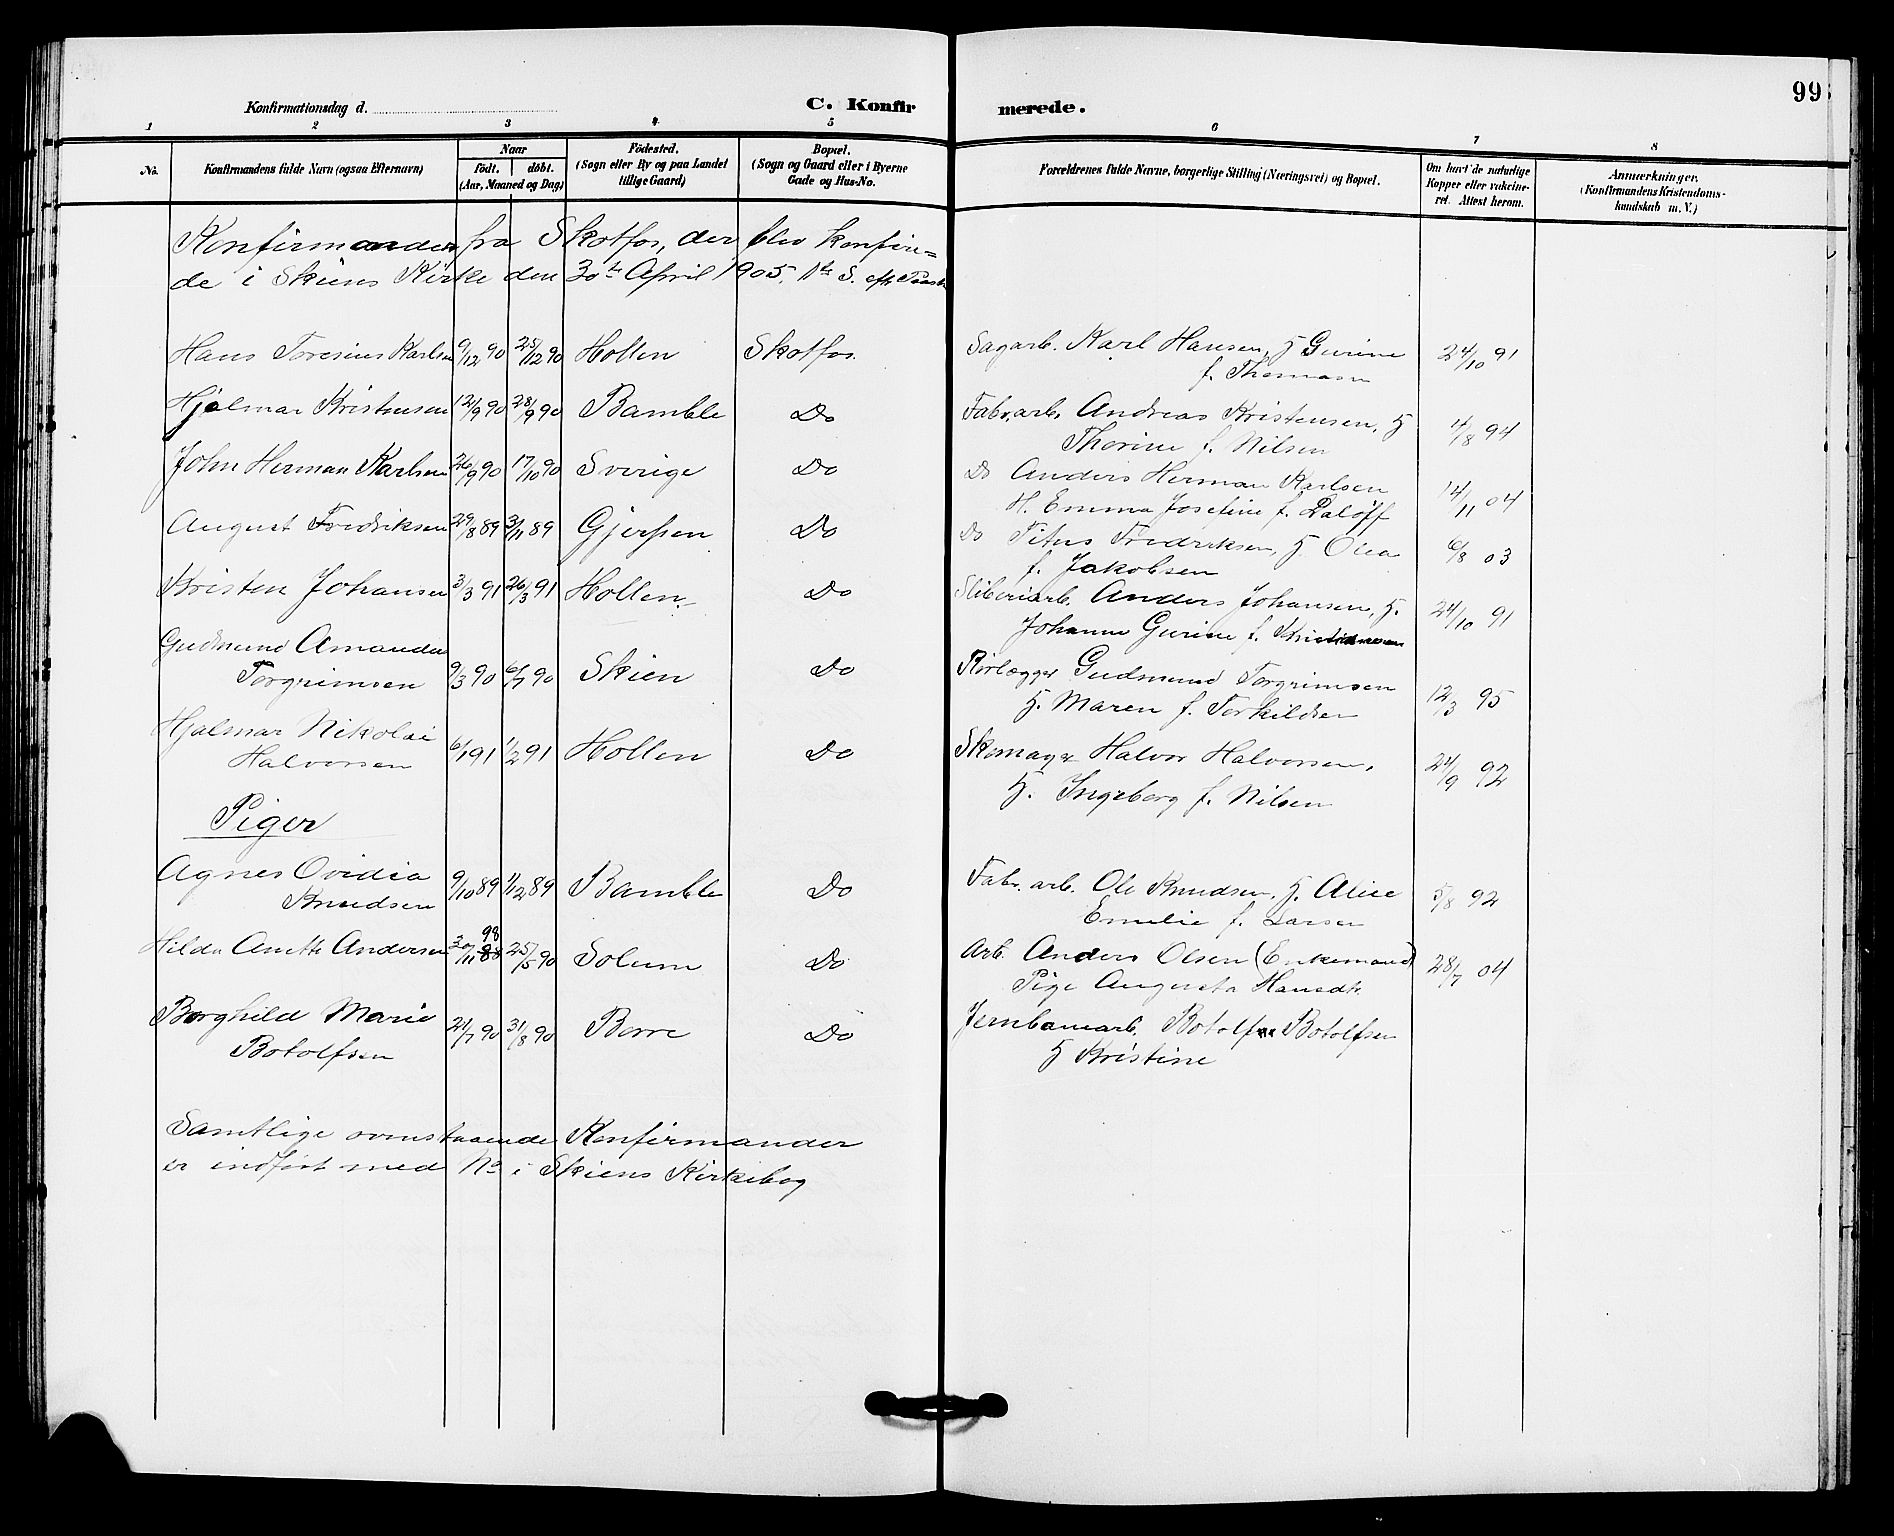 99
Konfirmationsdag d.
C. Konfir merede.
1 2 3 4 5 6 7 8
No.
Konfirmandens fulde Navn (ogsaa Efternavn)
Naar
födt. döbt.
(Aar, Maaned og Dag)
Födested.
(Sogn eller By og paa Landet
tillige Gaard)
Bopæl.
(Sogn og Gaard eller i Byerne
Gade og Hus-No.
Forældrenes fulde Navne, borgerlige Stilling (Næringsvei) og Bopæl.
Om havt de naturlige
Kopper eller vakcine-
ret. Attest herom.
Anmærkninger.
(Konfirmandens Kristendoms-
kundskab m. V.)
Konfirmander fra Skotfos, der blev konfire=
de i Skiens Kirke den 30te April 1905, 1ste S. eft. Paaske
Hans Toresius Karlsen 9/12 90 25/12 90 Hollen Skotfos. Sagarb. Karl Hansen, H Gurine 24/10 91
f. Thomasen
Hjalmar Kristensen 12/9 90 28/9 90 Bamble Do Fabr.arb. Andreas Kristensen, H 4/8 94
Thorine f. Nilsen
John Herman Karlsen 26/9 90 17/10 90 Sverige Do Do Anders Herman Karlsen 14/11 04
H. Emma Josefine f. Palöff
August Fredriksen 29/8 89 3/11 89 Gjerpen Do Do Titus Fredriksen, H. Olea 6/8 03
f. Jakobsen
Kristen Johansen 3/3 91 26/3 91 Hollen. Do Sliberiarb. Anders Johansen, H. 24/10 91
Johanne Gurine f. Kristensen
Gudmund Amandus
Torgrimsen 9/3 90 6/7 90 Skien Do Rörlægger Gudmund Torgrimsen 12/3 95
H. Maren f. Torkildsen
Hjalmar Nikolai
Halvorsen 6/1 91 1/2 91 Hollen Do Skomager Halvor Halvorsen, 24/9 92
H. Ingeborg f. Nilsen
Piger
Agnes Ovidia
Knudsen 9/10 89 1/12 89 Bamble Do Fabr. arb. Ole Knudsen, H. Alice 5/8 92
Emilie f. Larsen
Hilda Anette Andersen 30/11 88 98 25/5 90 Solum Do Arb. Anders Olsen (Enkemand) 28/7 04
Pige Augusta Hansdtr.
Borghild Marie
Botolfsen 21/7 90 31/8 90 Borre Do Jernbanearb. Botolf Botolfsen
H Kristine
Samtlige ovenstaaende Konfirmander
er indfört med No i Skiens Kirkebog